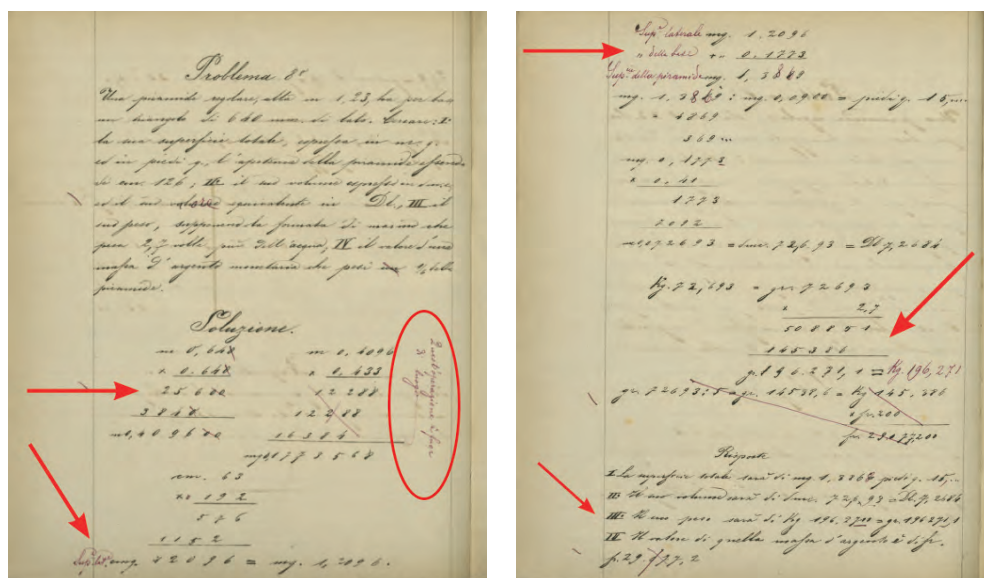 Problema 8º
Una piramide regolare, alta m 1,23, ha per base
un triangolo di 640 mm. di lato. Cercare: I:
la sua superficie totale, espressa in m. q.
ed in piedi q., l'apotema della piramide essendo
di cm. 126; II: il suo volume espresso in dmc.
ed il suo equivalente in Dl., III il
suo peso, supponendola formata di marmo che
pesa 2,7 volte più dell'acqua, IV il valore d'una
massa d'argento monetario che pesi 1/5 della
piramide.
Soluzione.
m 0,640
x 0.640
25.600
3840
m0,409600
m 0,4096
x 0.433
12288
12288
16384
mq0,1773568
cm. 63
x 192
576
1152
Sup. lat. cmq. 12096 = mq. 1,2096.
Sup. laterale mq. 1.2096
" della base + " 0.1773
Sup. della piramide mq. 1,3869
mq. 1,3869 : mq. 0,0900 = piedi q. 15,
4869
369
mq. 0,1773
x 0,41
1773
7092
mc0,072693 = dmc. 72,693 = Dl 7,2693
Kg. 72,693 = gr. 72693
x 2,7
508851
145386
gr. 196.271,1 = Kg. 196,271
gr. 72693:5 = gr. 14538,6 = Kg 145,386
x fr. 200
fr. 29.077,200
Risposte
I. La superficie totale sarà di mq 1,3869 piedi q. 15,
II: Il suo volume sarà di dmc. 72,693 = Dl. 7,2693
III: Il suo peso sarà di Kg 196.271 = gr. 196271,1
IV Il valore di quella massa d'argento è di fr.
fr. 29.077,2